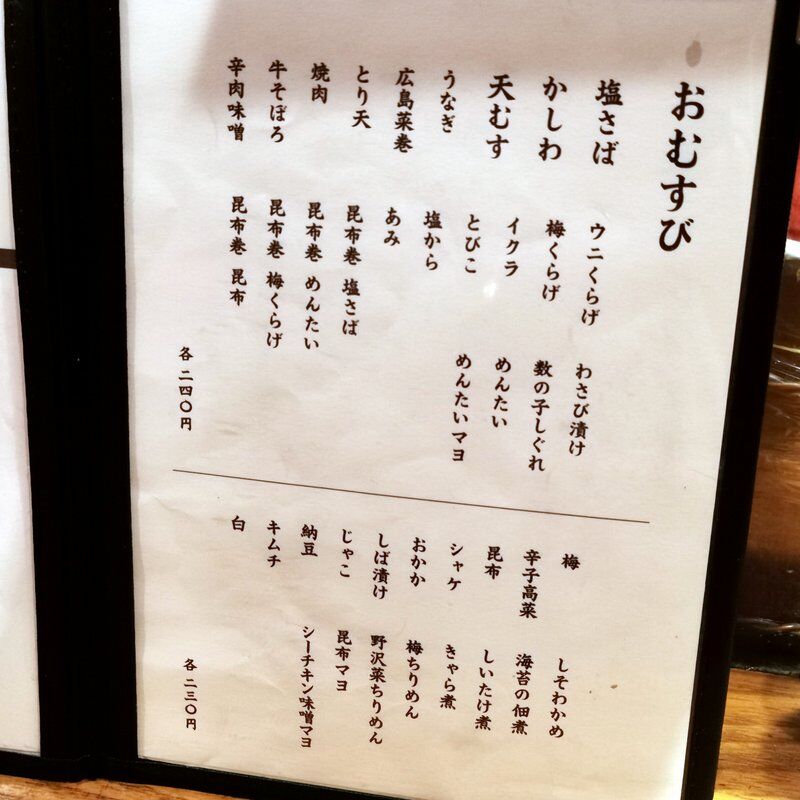 おむすび
塩さば
かしわ
天むす
うなぎ
広島菜巻
とり天
焼肉
牛そぼろ
辛肉味噌
ウニくらげ
梅くらげ
イクラ
とびこ
塩から
あみ
昆布巻 塩さば
昆布巻 めんたい
昆布巻 梅くらげ
昆布巻 昆布
わさび漬け
数の子しぐれ
めんたい
めんたいマヨ
各 二四〇円
梅
辛子高菜
昆布
シャケ
おかか
しば漬け
じゃこ
納豆
キムチ
白
しそわかめ
海苔の佃煮
しいたけ煮
きゃら煮
梅ちりめん
野沢菜ちりめん
昆布マヨ
シーチキン味噌マヨ
各 二三〇円